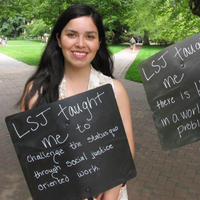 LSJ taught
me to
challenge the status quo
through social justice
oriented work.
LSJ taught
me
there is
in a world
problem